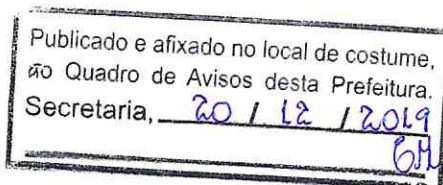 Publicado e afixado no local de costume,
ao Quadro de Avisos desta Prefeitura.
Secretaria, 20 / 12 / 2019